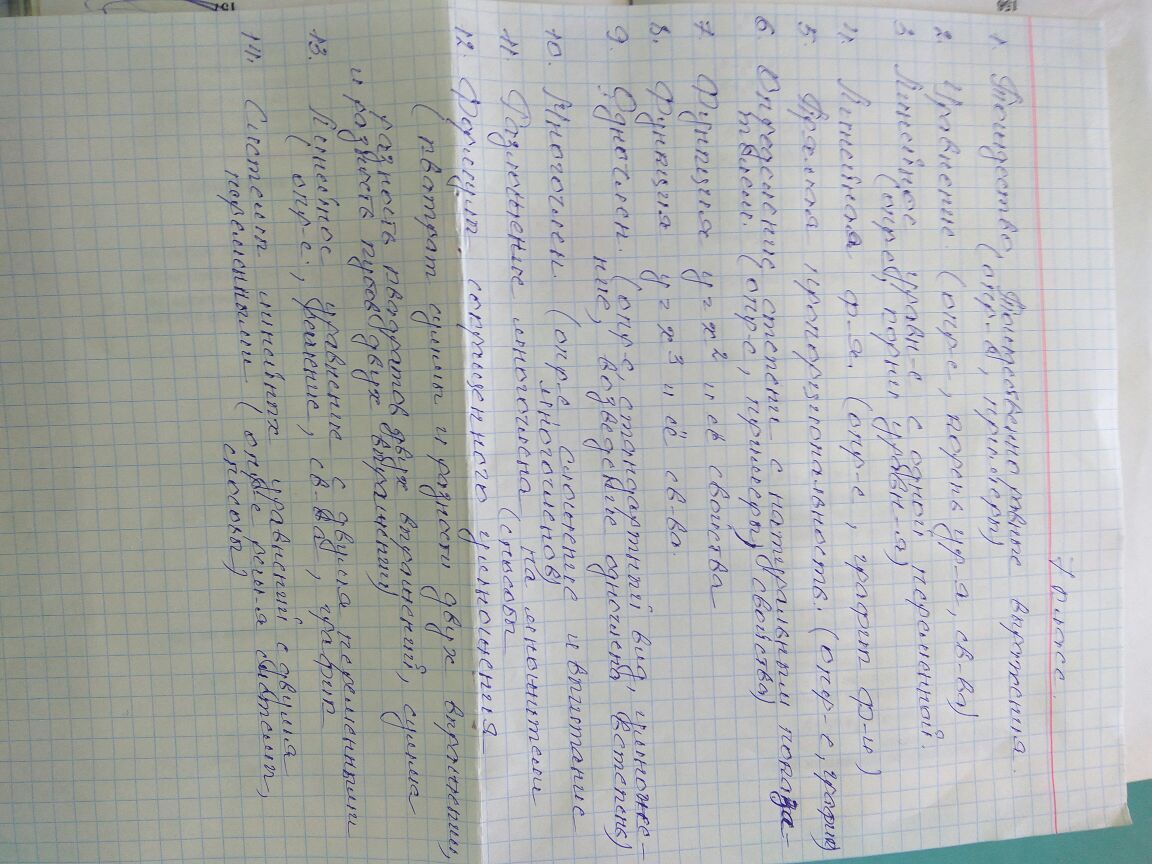 7 класс.
1. Тождество, Тождественно равные выражения.
(опр-е, примеры)
2. Уравнение. (опр-е, корень ур-я, св-ва)
3 Линейное уравн-е с одной переменной.
(опре, корни уравн-я)
4. Линейная ф-я. (опр-е, график ф-ии)
5. Прямая пропорциональность. (опр-е, график)
6. Определение степени с натуральным показа-
целем. (опр-е, примеры, свойства)
7. Функция y = x² и её свойства
8. Функция y = x³ и её св-ва.
9. Одночлен. (опр-е, стандартный вид, умноже-
ние, возведение одночлена в степень)
10. Многочлен. (опр-е, сложение и вычитание
многочленов)
11. Разложение многочлена на множители
(способы)
12. Формулы сокращенного умножения
(квадрат суммы и разности двух выражении,
разность квадратов двух выражений, сумма
и разность кубов двух выражений)
13. Линейное уравнение с двумя переменными
(опр-е, решение, св-ва, график
14. Системы линейных уравнений с двумя
переменными (опр-е реш-я системы,
способы)